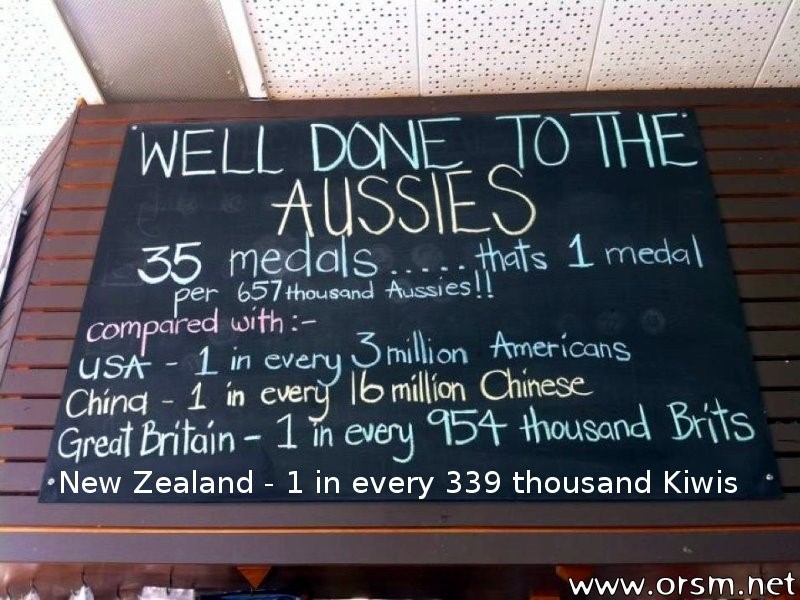 WELL DONE TO THE
AUSSIES
35 medals.....thats 1 medal
per 657thousand Aussies!!
compared with:-
USA - 1 in every 3million Americans
China - 1 in every 16 million Chinese
Great Britain - 1 in every 954 thousand Brits
New Zealand - 1 in every 339 thousand Kiwis
www.orsm.net